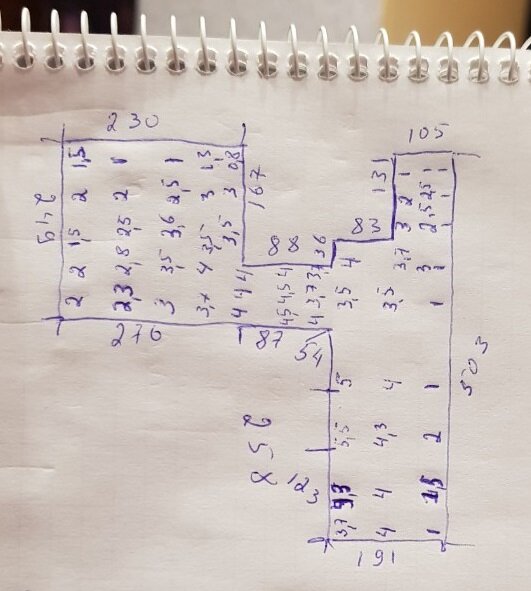 230
105
1,5 1 1 1,3 0,8
167
131
1 1
2 2 2,5 3 3
2 2,5 1
249
83
3 2,5 1
1,5 2,5 3,6 3,5 3,5
88
36
2 2,8 3,5 4 4
4 3,7 4 3,7 3 1
2 2,3 3 3,7 4 4
4,5 4,5 4 3,7 3,5 3,5 1
276
87
54
503
5 4 1
258
5,5 4,3 2
123
3,3 4 1,5
3,7 4 1
191